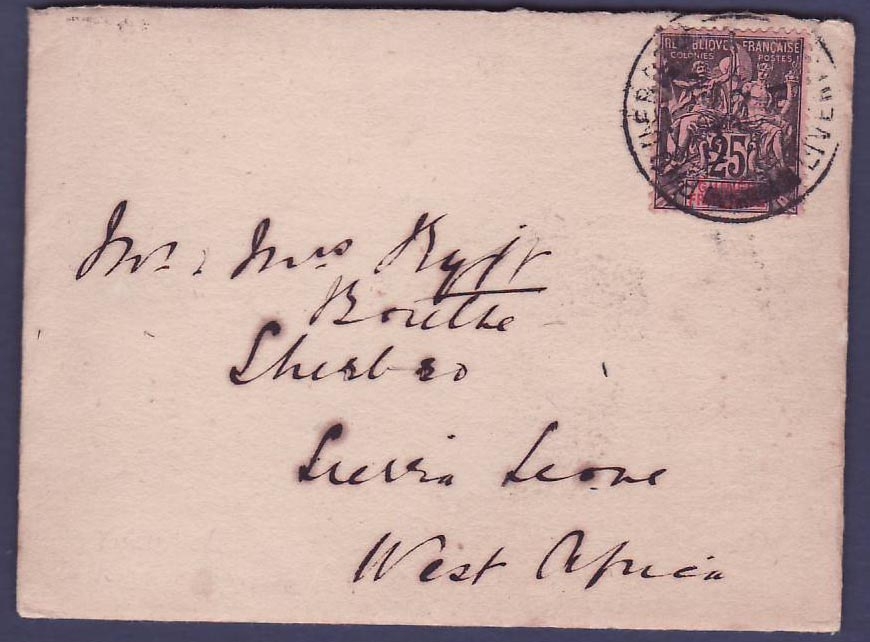 RÉPUBLIQUE FRANÇAISE
COLONIES POSTES
25
Mr. & Mrs
Bonthe
Sherbro
Sierra Leone
West Africa